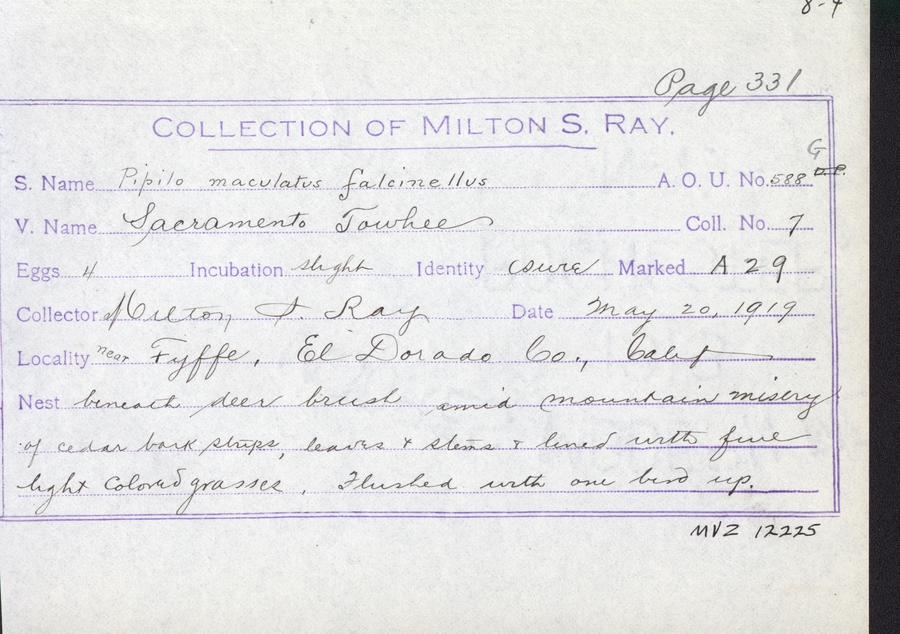 8-4
Page 331
COLLECTION OF MILTON S. RAY.
G
S. Name Pipilo maculatus falcinellus A. O. U. No. 588
V. Name Sacramento Towhee Coll. No. 7
Eggs 4 Incubation slight Identity Marked A 29
Collector Milton S. Ray Date May 20, 1919
Locality near Fyffe, El Dorado Co., Calif
Nest beneath deer brush amid mountain misery
of cedar bark strips, leaves & stems & lined with fine
light colored grasses. Flushed with one bird up.
MVZ 12225